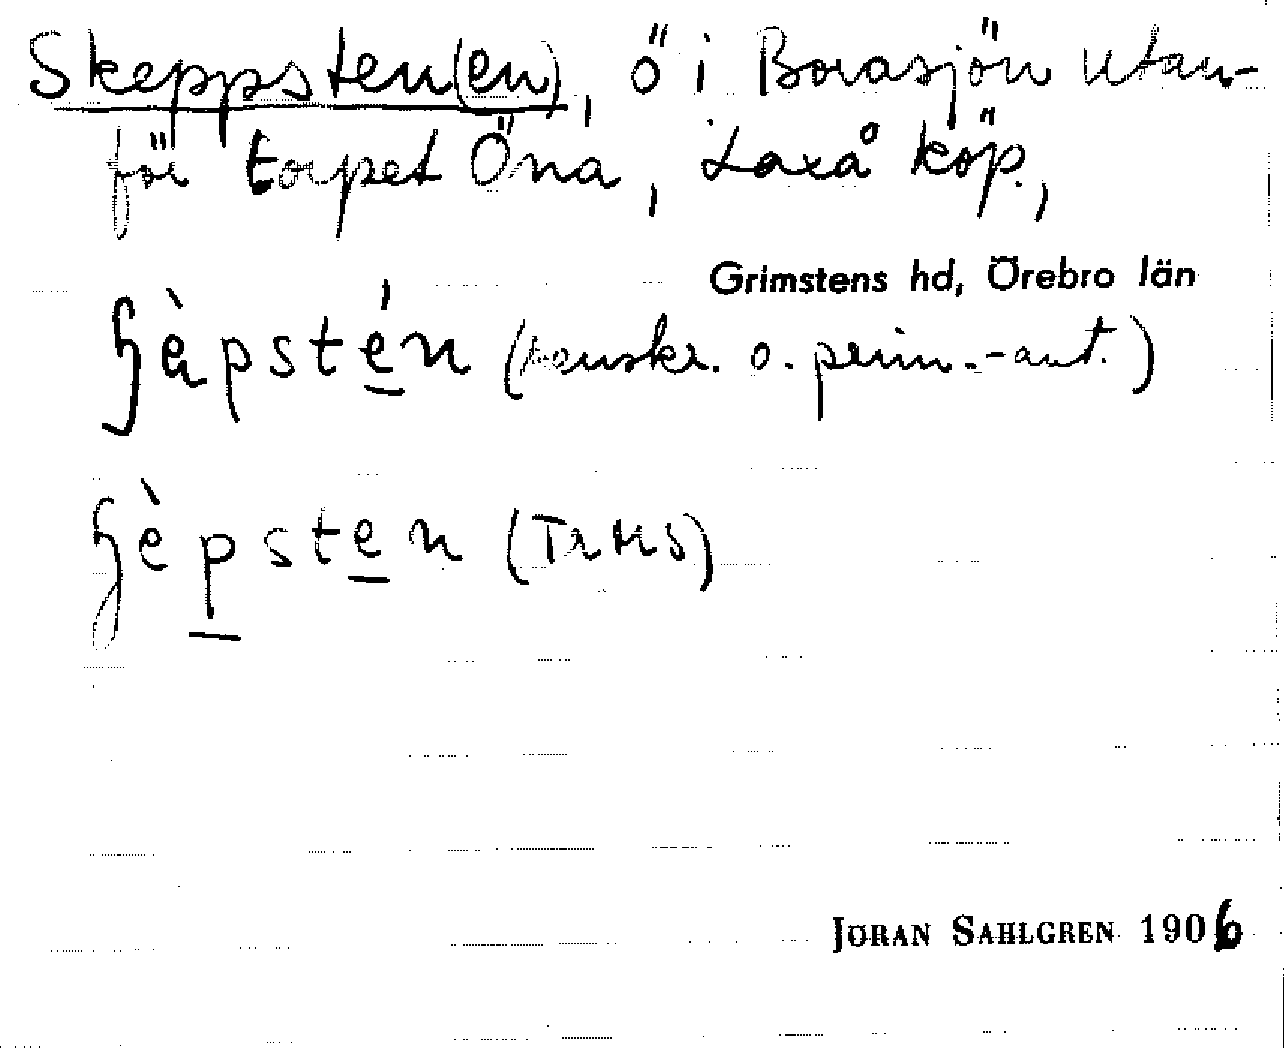 Skeppsten(en), ö i Borasjön utan-
för torpet Öna, Laxå köp.,
Grimstens hd, Örebro län
(renskr. o. prim.-ant.)
(TrMS)
JÖRAN SAHLGREN 1906